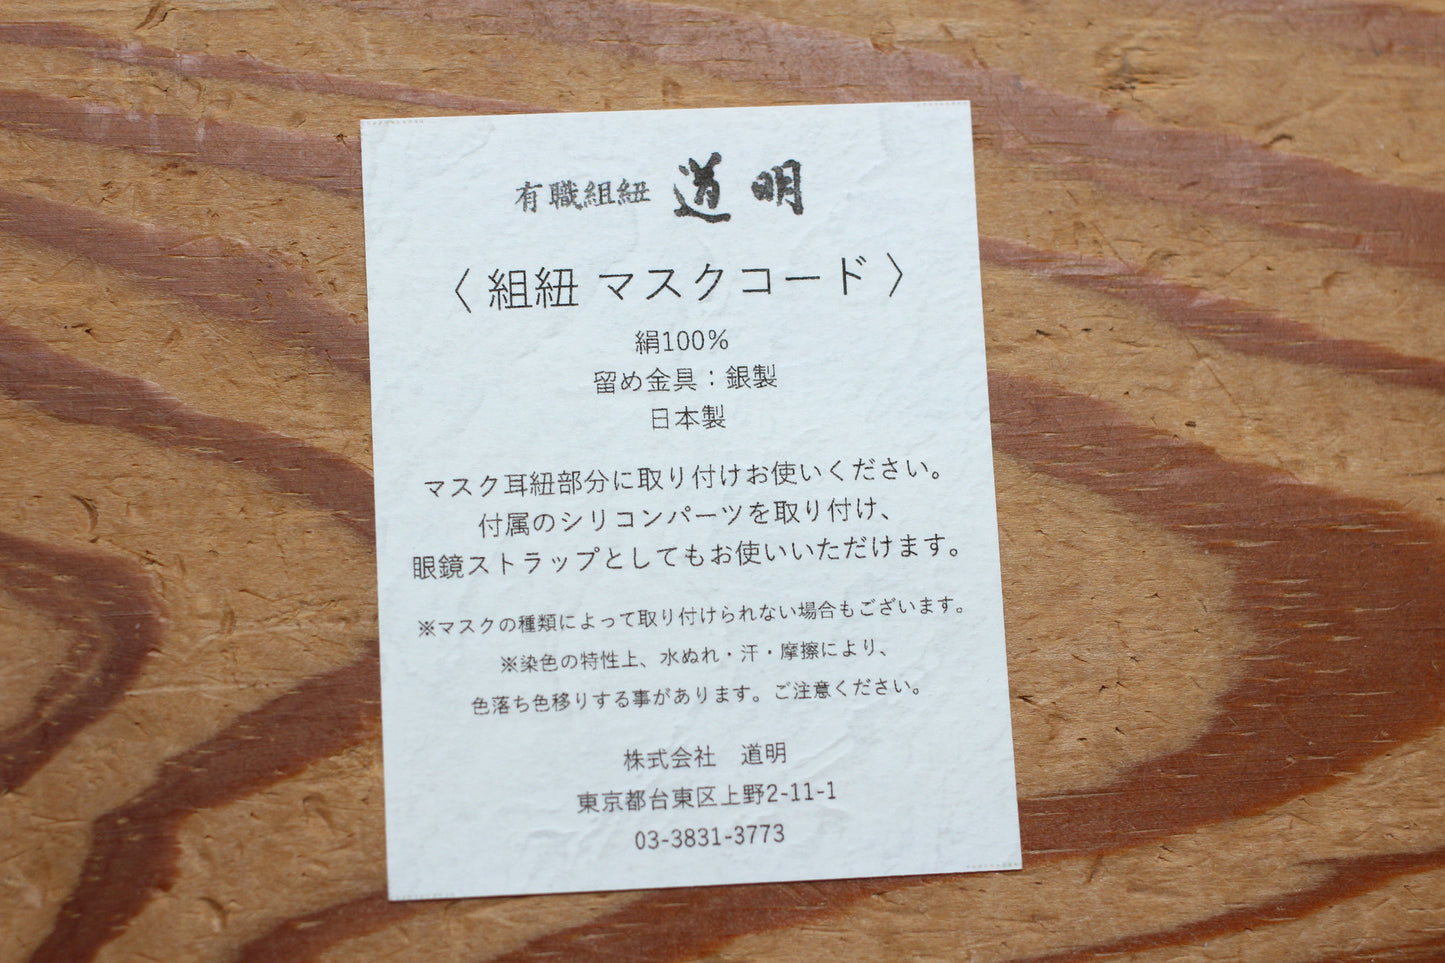 有職組紐 道明
〈 組紐 マスクコード 〉
絹100%
留め金具：銀製
日本製
マスク耳紐部分に取り付けお使いください。
付属のシリコンパーツを取り付け、
眼鏡ストラップとしてもお使いいただけます。
※マスクの種類によって取り付けられない場合もございます。
※染色の特性上、水ぬれ・汗・摩擦により、
色落ち色移りする事があります。ご注意ください。
株式会社　道明
東京都台東区上野2-11-1
03-3831-3773